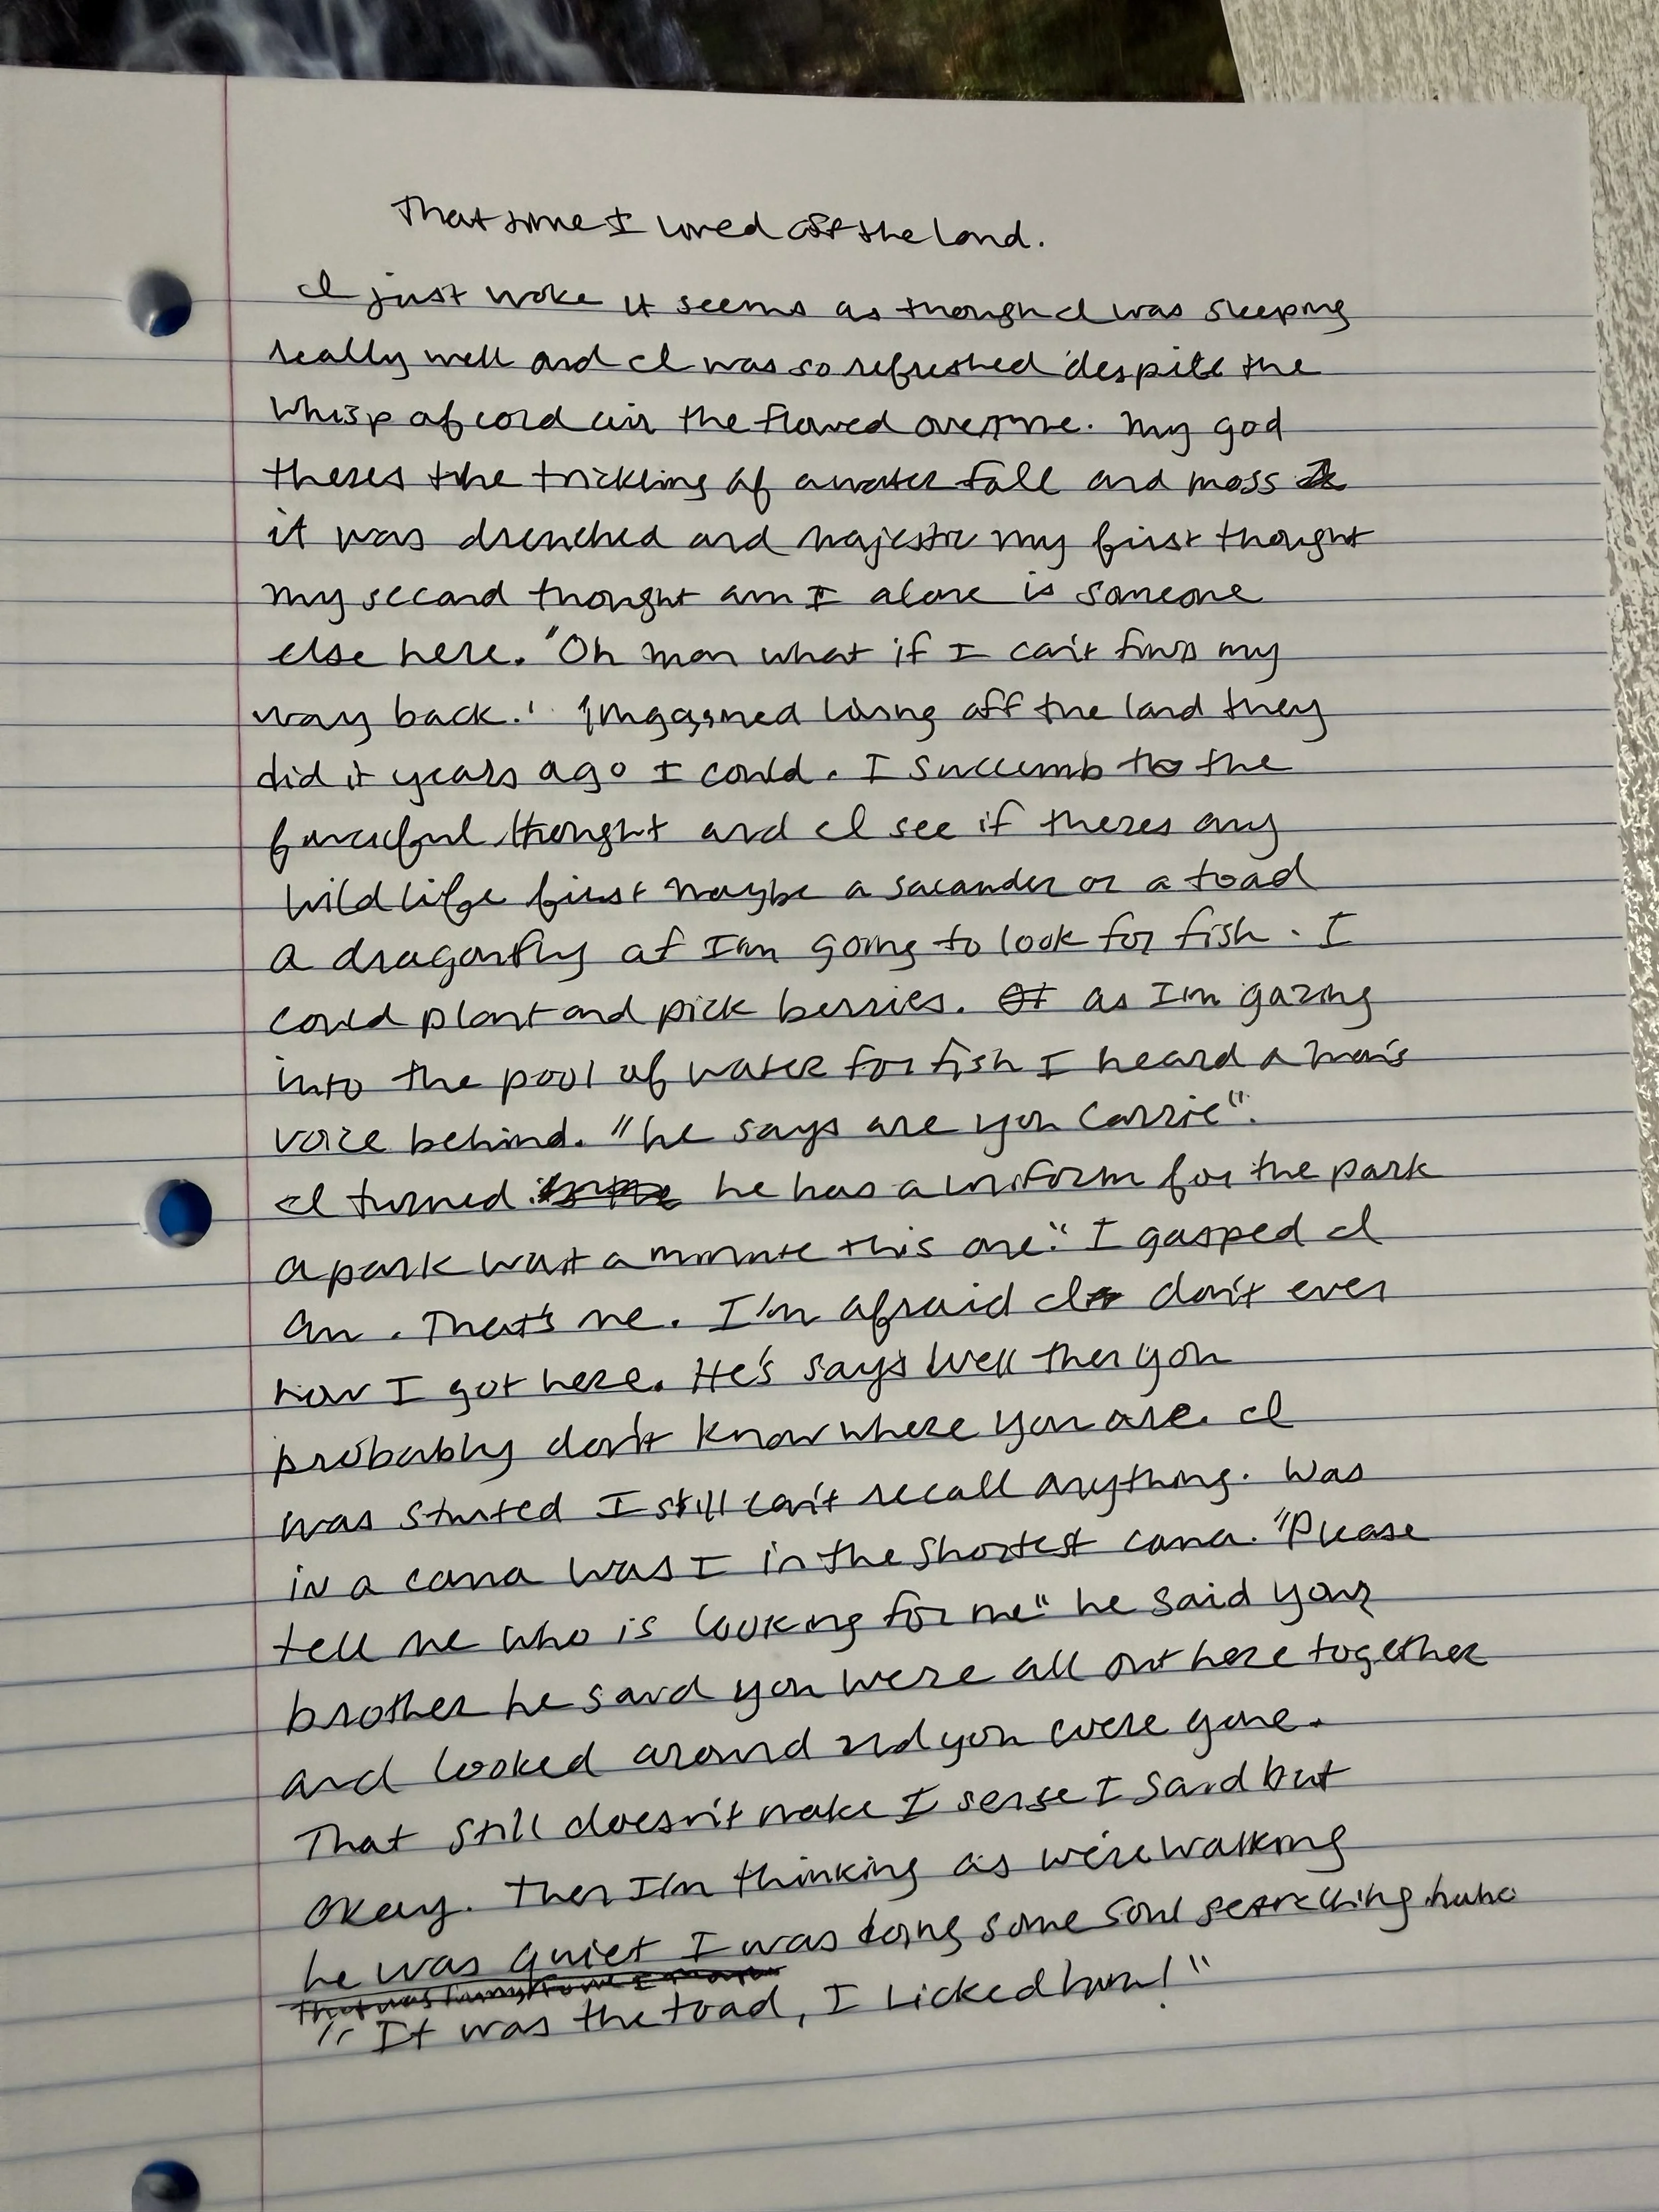 That time I lived off the land.
I just woke it seems as though I was sleeping
really well and I was so refreshed despite the
whisp of cold air the flowed over me. My god
theres the trickling of a water fall and moss
it was drenched and majestic my first thought
my second thought am I alone is someone
else here. "Oh man what if I can't find my
way back." Imagained living off the land they
did it years ago I could. I succumb to the
fanciful thought and I see if theres any
wild life first maybe a salander or a toad
a dragonfly at I'm going to look for fish. I
could plant and pick berries. as I'm gazing
into the pool of water for fish I heard a man's
voice behind. "he says are you Carrie".
I turned he has a uniform for the park
a park wait a minute this one." I gasped I
am. That's me. I'm afraid I don't even
how I got here. He's says well then you
probably don't know where you are. I
was I still can't recall anything. Was
in a coma was I in the shortest coma. "Please
tell me who is looking for me" he said your
brother he said you were all out here together
and looked around and you were gone.
That still doesn't make I sense I said but
okay. Then I'm thinking as we're walking
he was quiet I was doing some soul searching haha
"It was the toad, I Licked him!"